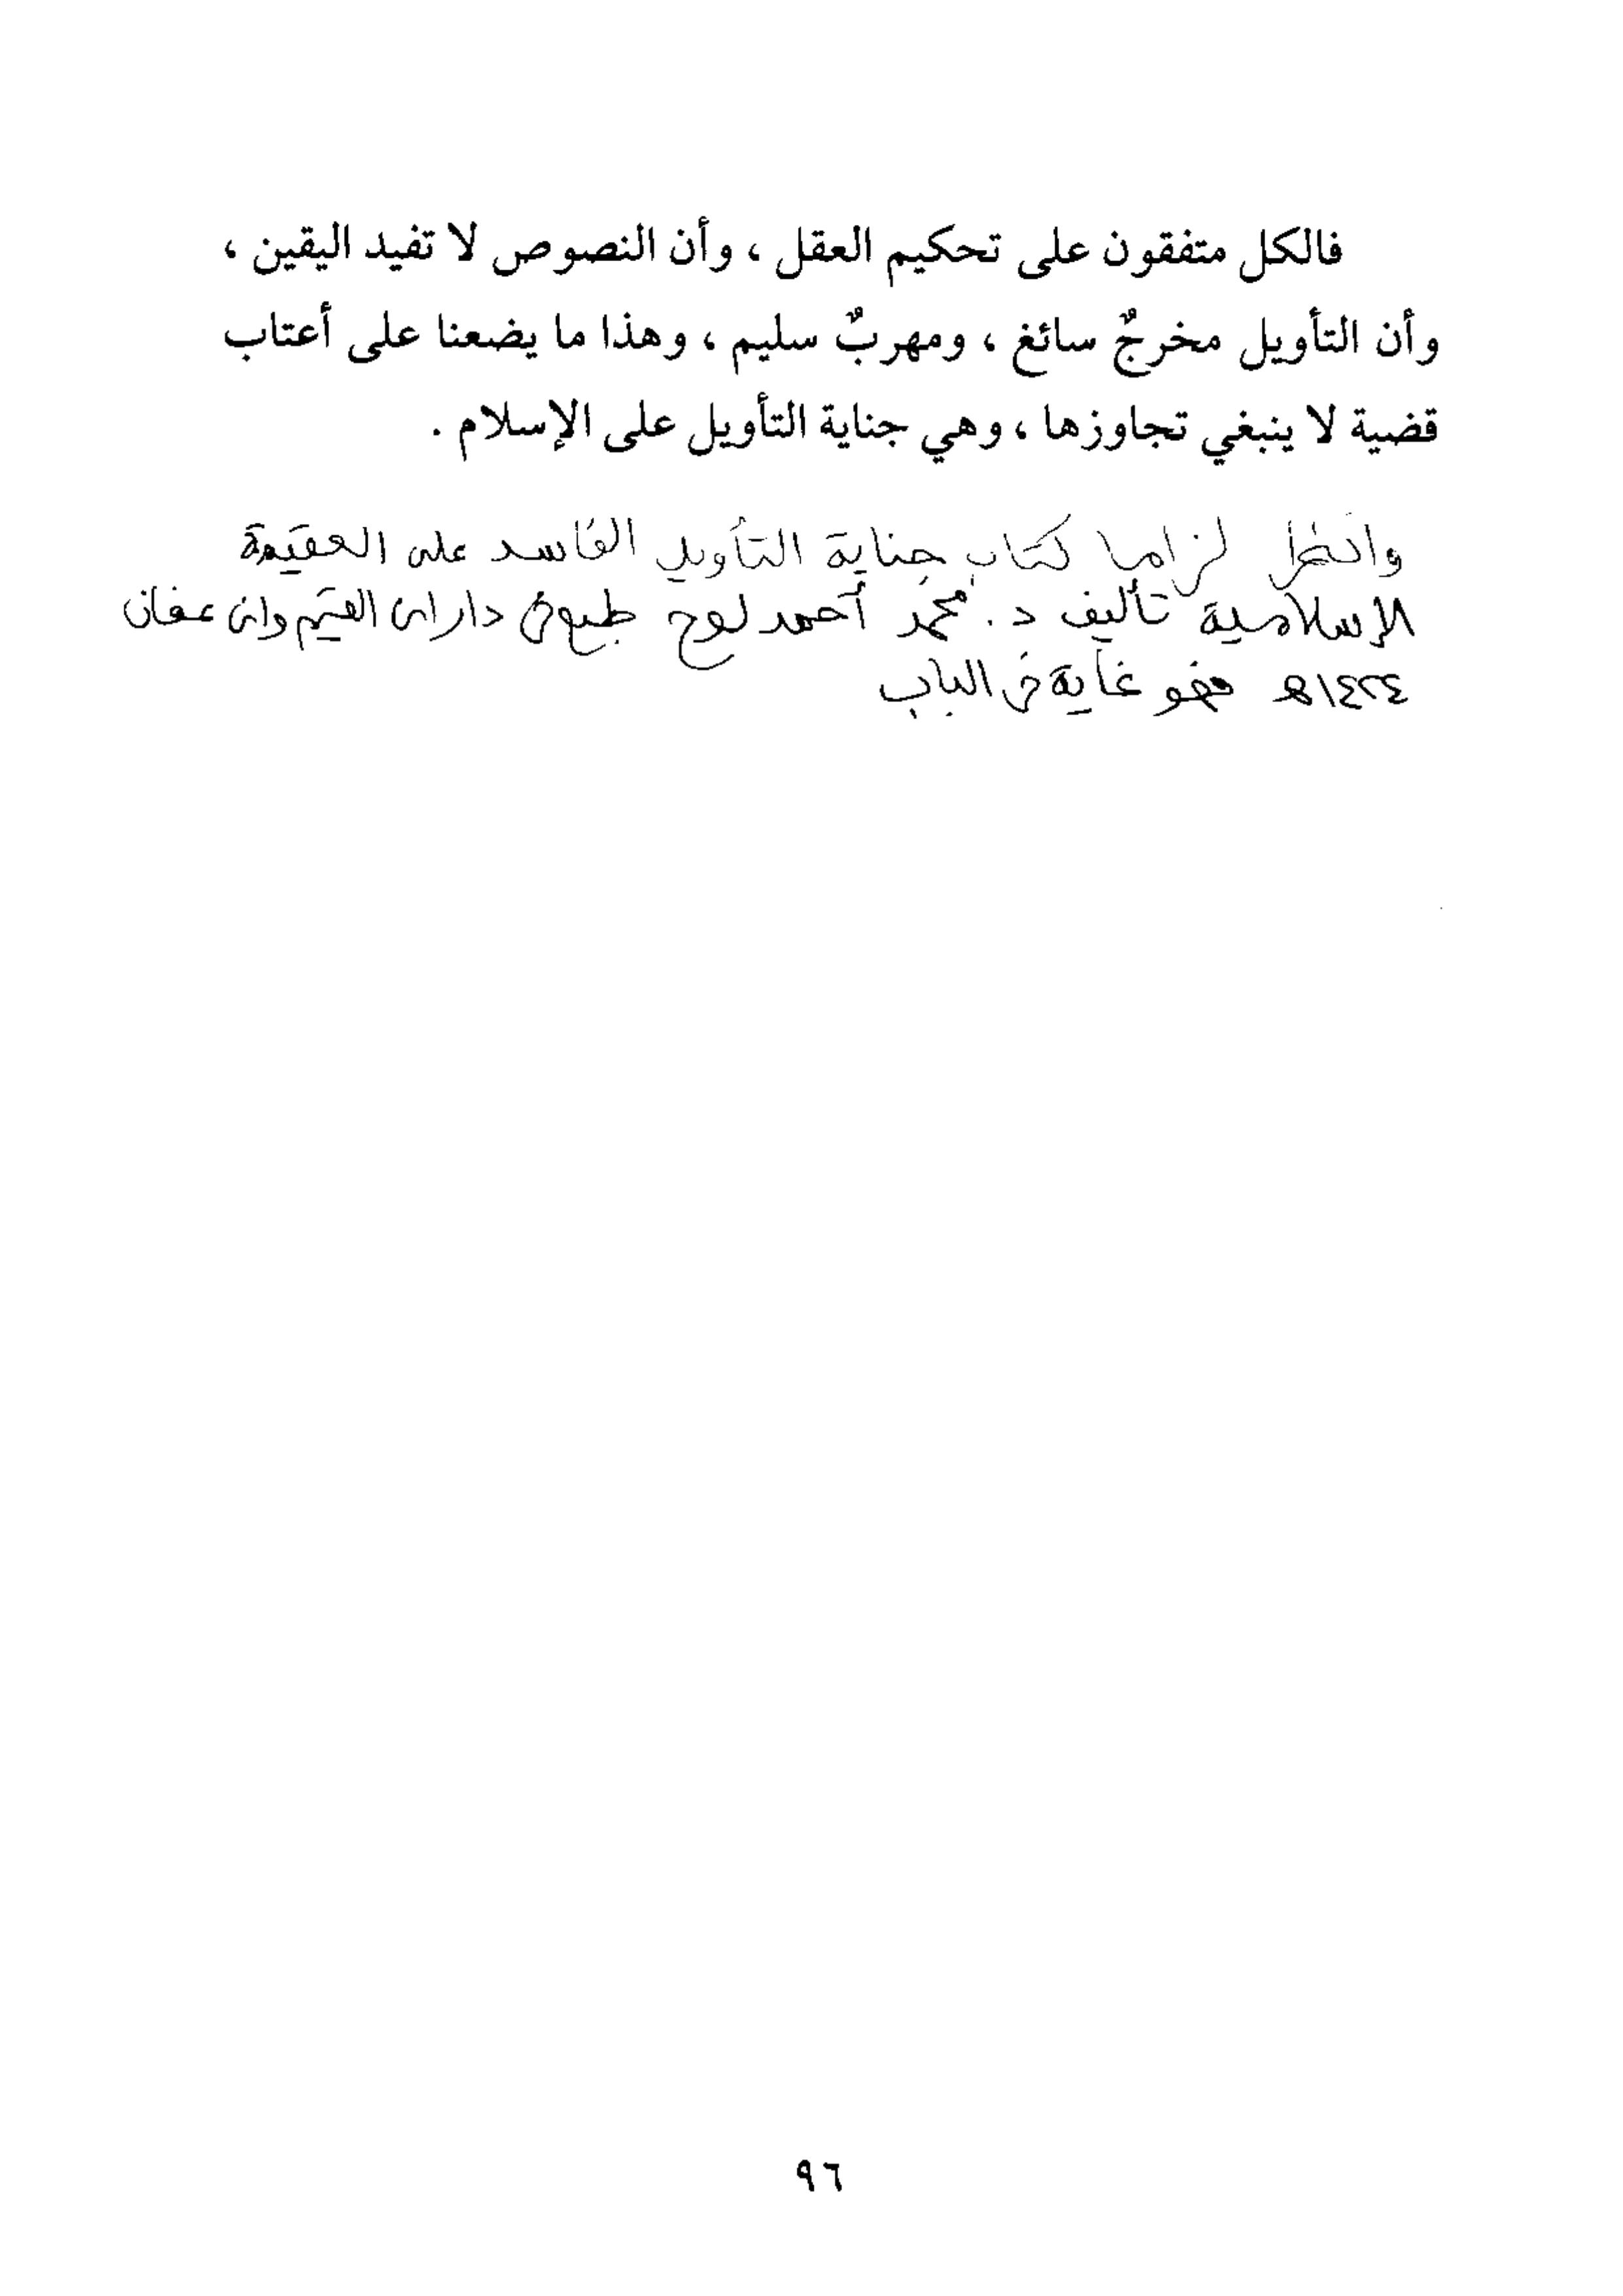 فالكل متفقون على تحكيم العقل ، وأن النصوص لا تفيد اليقين ،
وأن التأويل مخرجٌ سائغ ، ومهربٌ سليم ، وهذا ما يضعنا على أعتاب
قضية لا ينبغي تجاوزها ، وهي جناية التأويل على الإسلام .
وانظر لزاما كتاب جناية التأويل الفاسد على العقيدة
الإسلامية تأليف د. محمد أحمد لوح طبع في دار ابن القيم وابن عفان
١٤٢٤هـ فهو غاية في الباب
٩٦